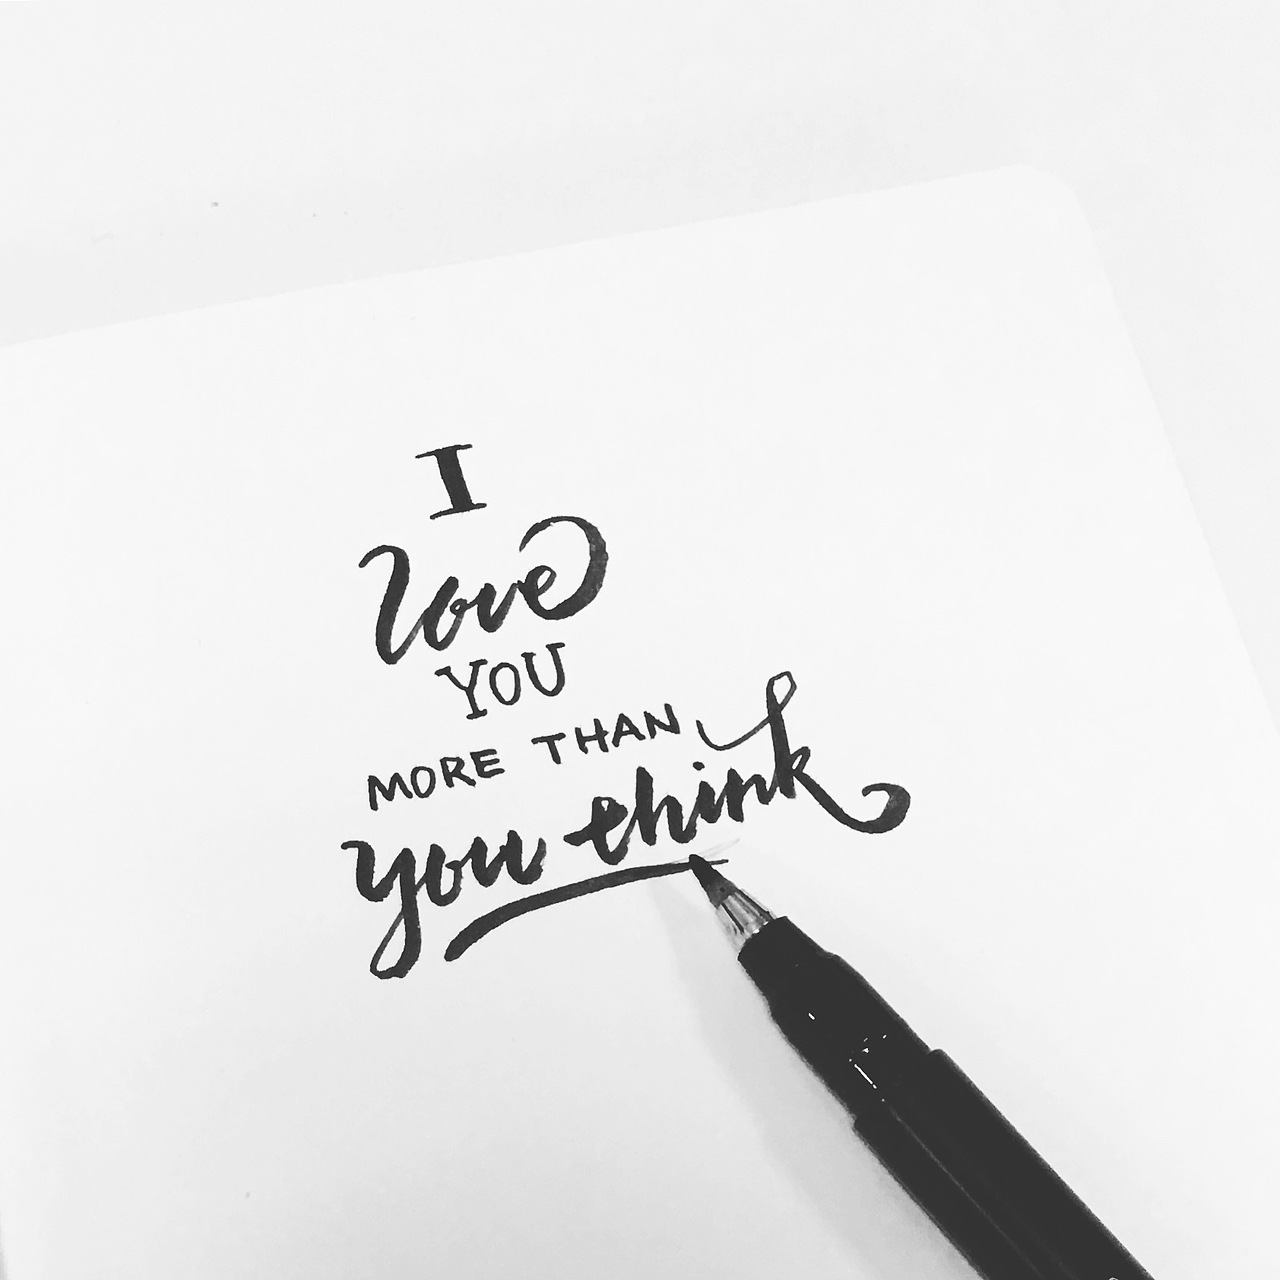 I
love
YOU
MORE THAN
you think